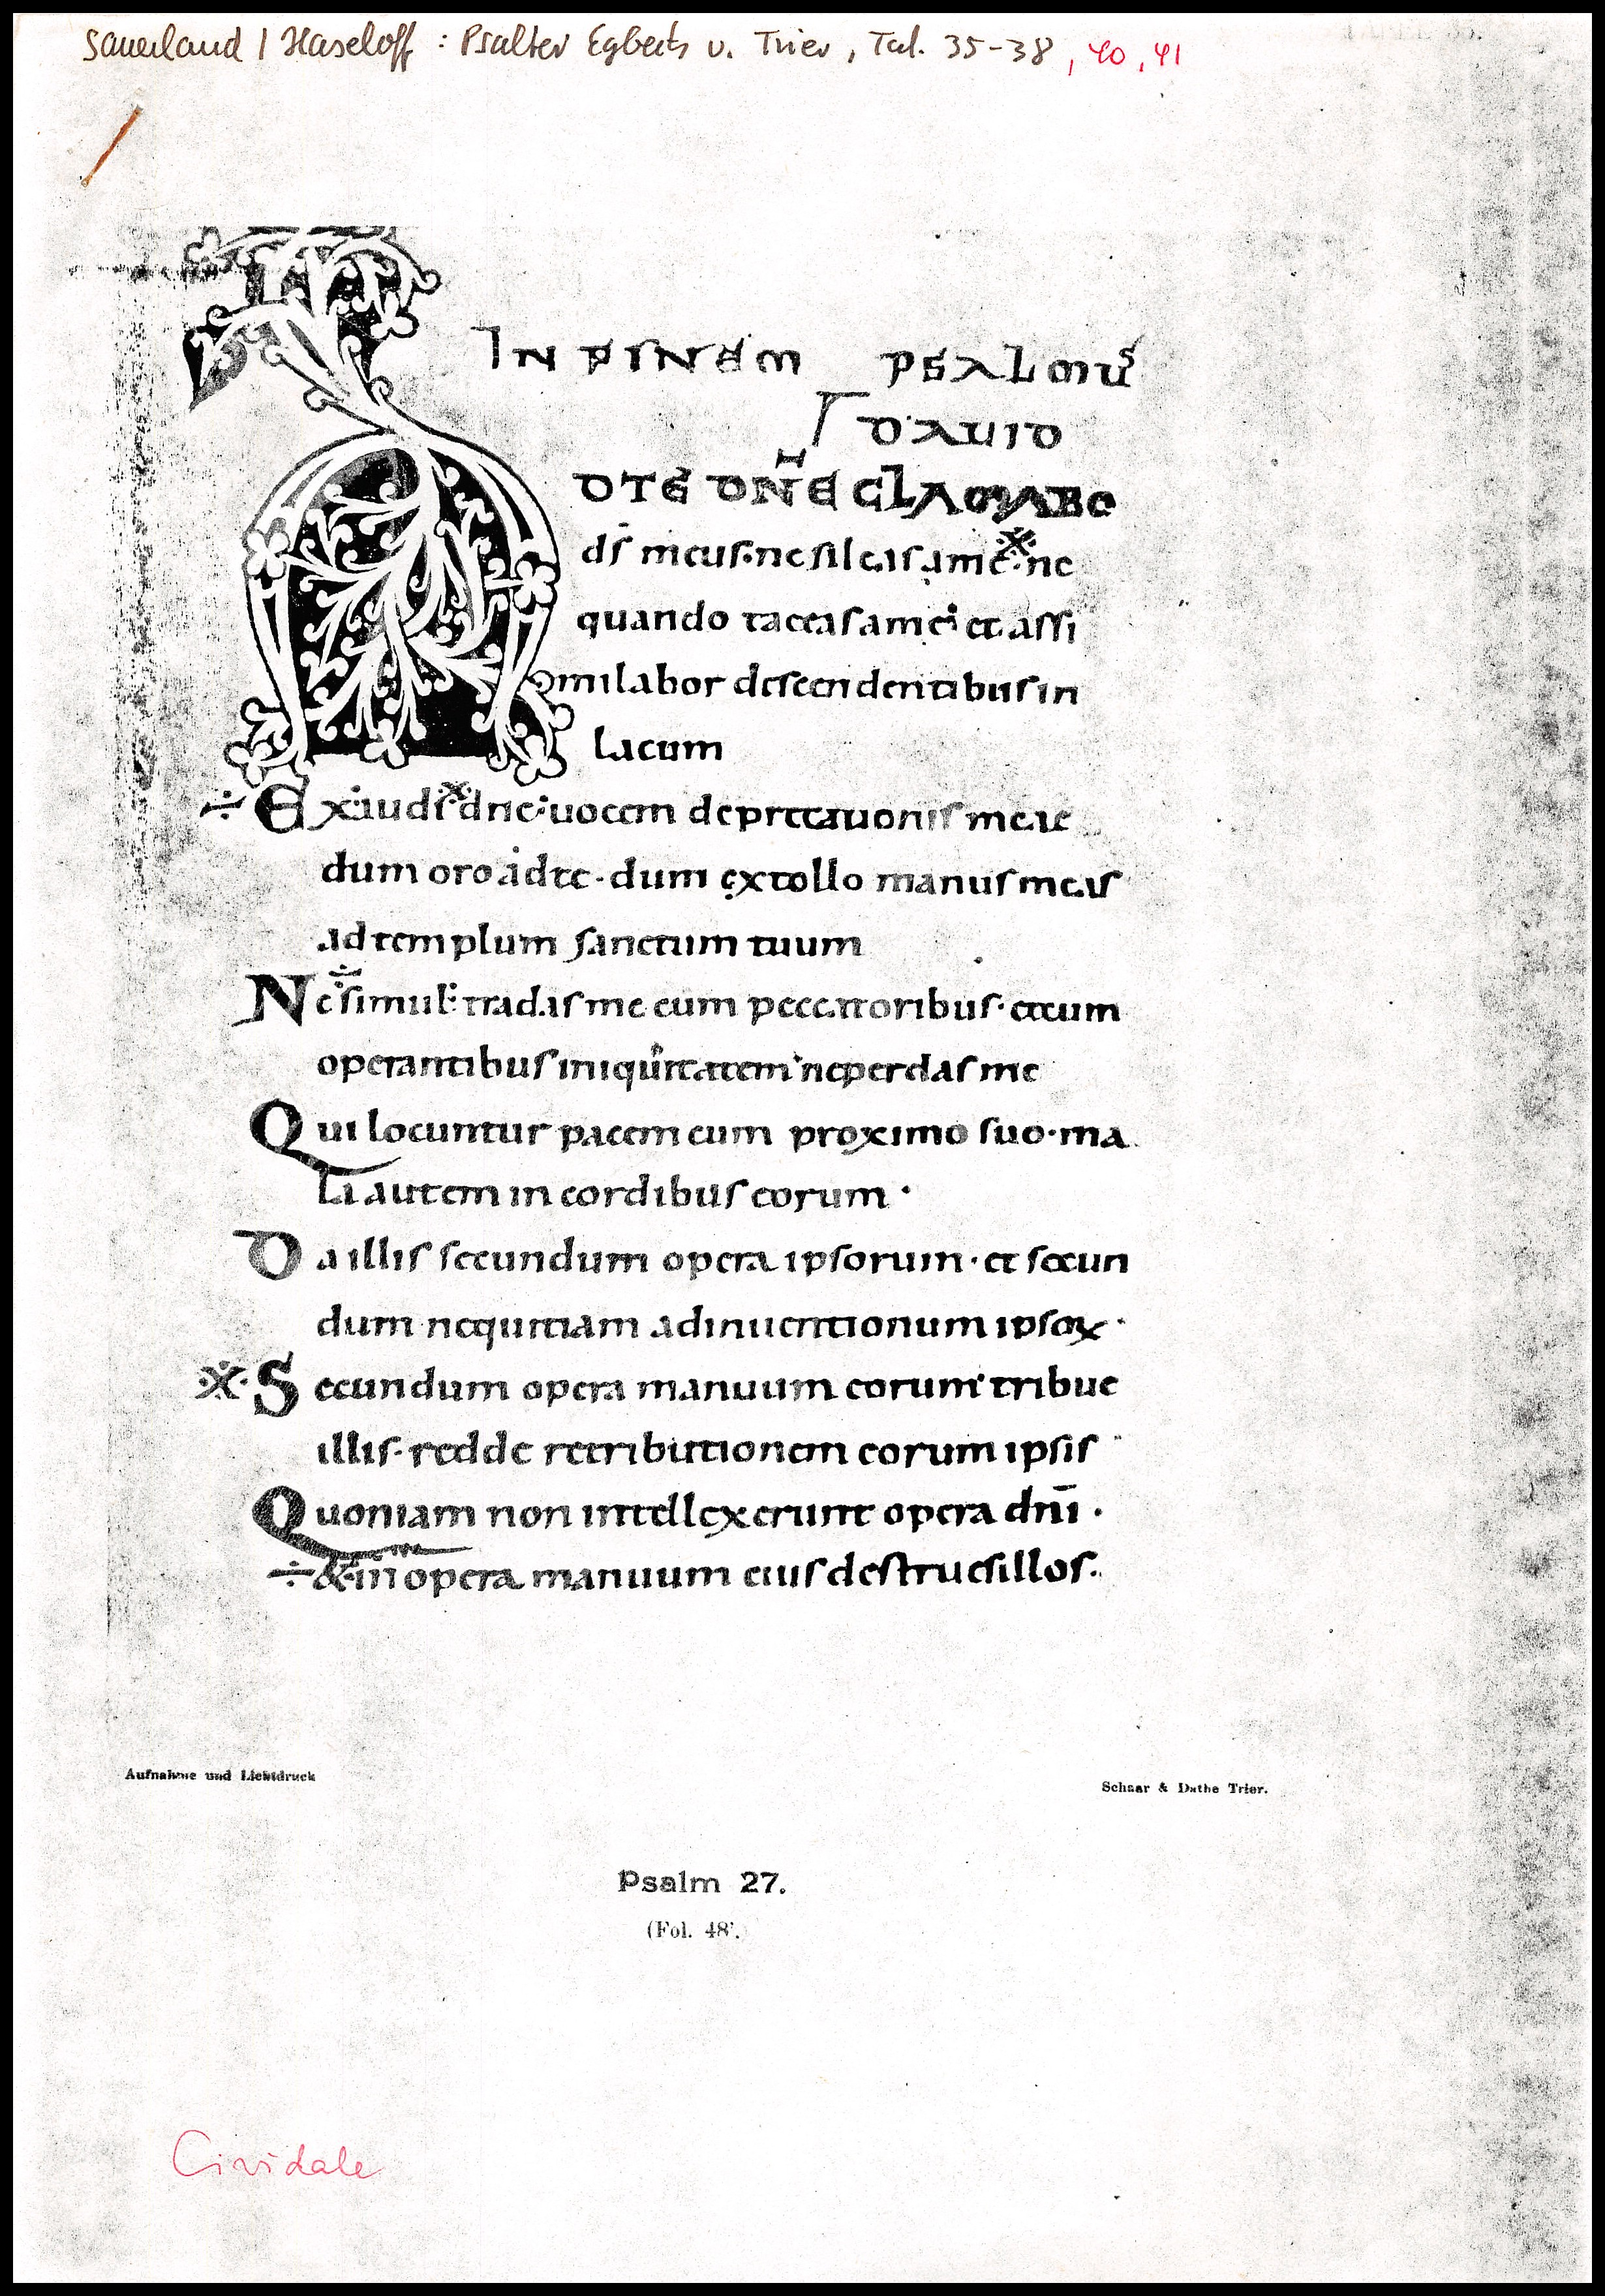 Sauerland / Haseloff : Psalter Egberts v. Trier, Taf. 35-38, 40, 41
IN FINEM PSALMUS
DAUID
ADTE DNE CLAMABO
ds meus· ne sileas a me: ne
quando taceas a me: et assi
milabor descendentibus in
lacum
÷ Exaudi dne: uocem deprecationis meae
dum oro ad te· dum extollo manus meas
ad templum sanctum tuum
Ne simul: tradas me cum peccatoribus· et cum
operantibus iniquitatem ne perdas me
Qui locuntur pacem cum proximo suo· ma
la autem in cordibus eorum·
Da illis secundum opera ipsorum· et secun
dum nequitiam adinuentionum ipsoꝝ·
※ Secundum opera manuum eorum tribue
illis· redde retributionem eorum ipsis
Quoniam non intellexerunt opera dni·
÷ & in opera manuum eius destrues illos·
Aufnahme und Lichtdruck
Schaar & Dathe Trier.
Psalm 27.
(Fol. 48'.)
Cividale